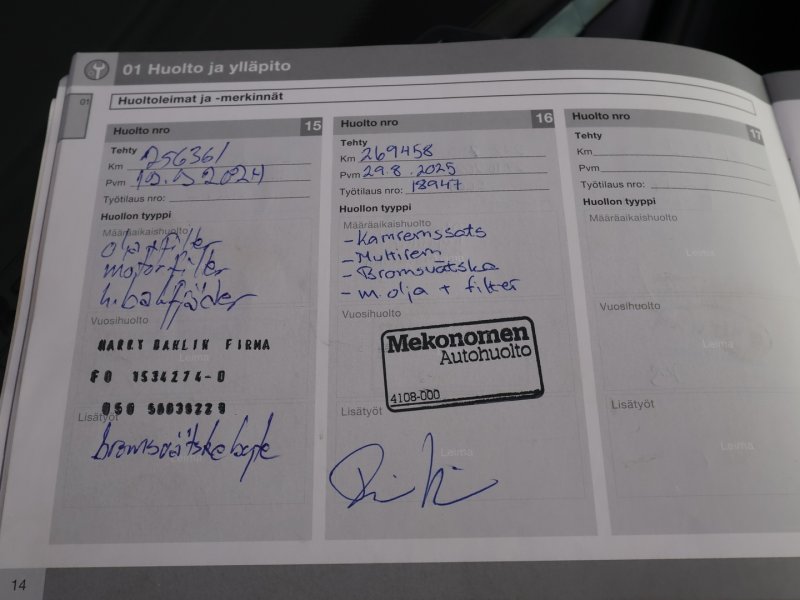 01 Huolto ja ylläpito
01
Huoltoleimat ja -merkinnät
Huolto nro 15
Tehty
Km 256361
Pvm 19.5 2024
Työtilaus nro:
Huollon tyyppi
Määräaikaishuolto
oljefilter
motorfilter
h.bakfjäder
Vuosihuolto
Leima
HARRY DAHLIN FIRMA
FO 1534274-0
050
Lisätyöt
bromsvätskebyte
Leima
Huolto nro 16
Tehty
Km 269458
Pvm 29.8.2025
Työtilaus nro: 18947
Huollon tyyppi
Määräaikaishuolto
- Kamremssats
- Multirem
- Bromsvätska
- m.olja + filter
Vuosihuolto
Mekonomen
Autohuolto
4108-000
Lisätyöt
Leima
Huolto nro 17
Tehty
Km
Pvm
Työtilaus nro:
Huollon tyyppi
Määräaikaishuolto
Leima
Vuosihuolto
Leima
Lisätyöt
Leima
14